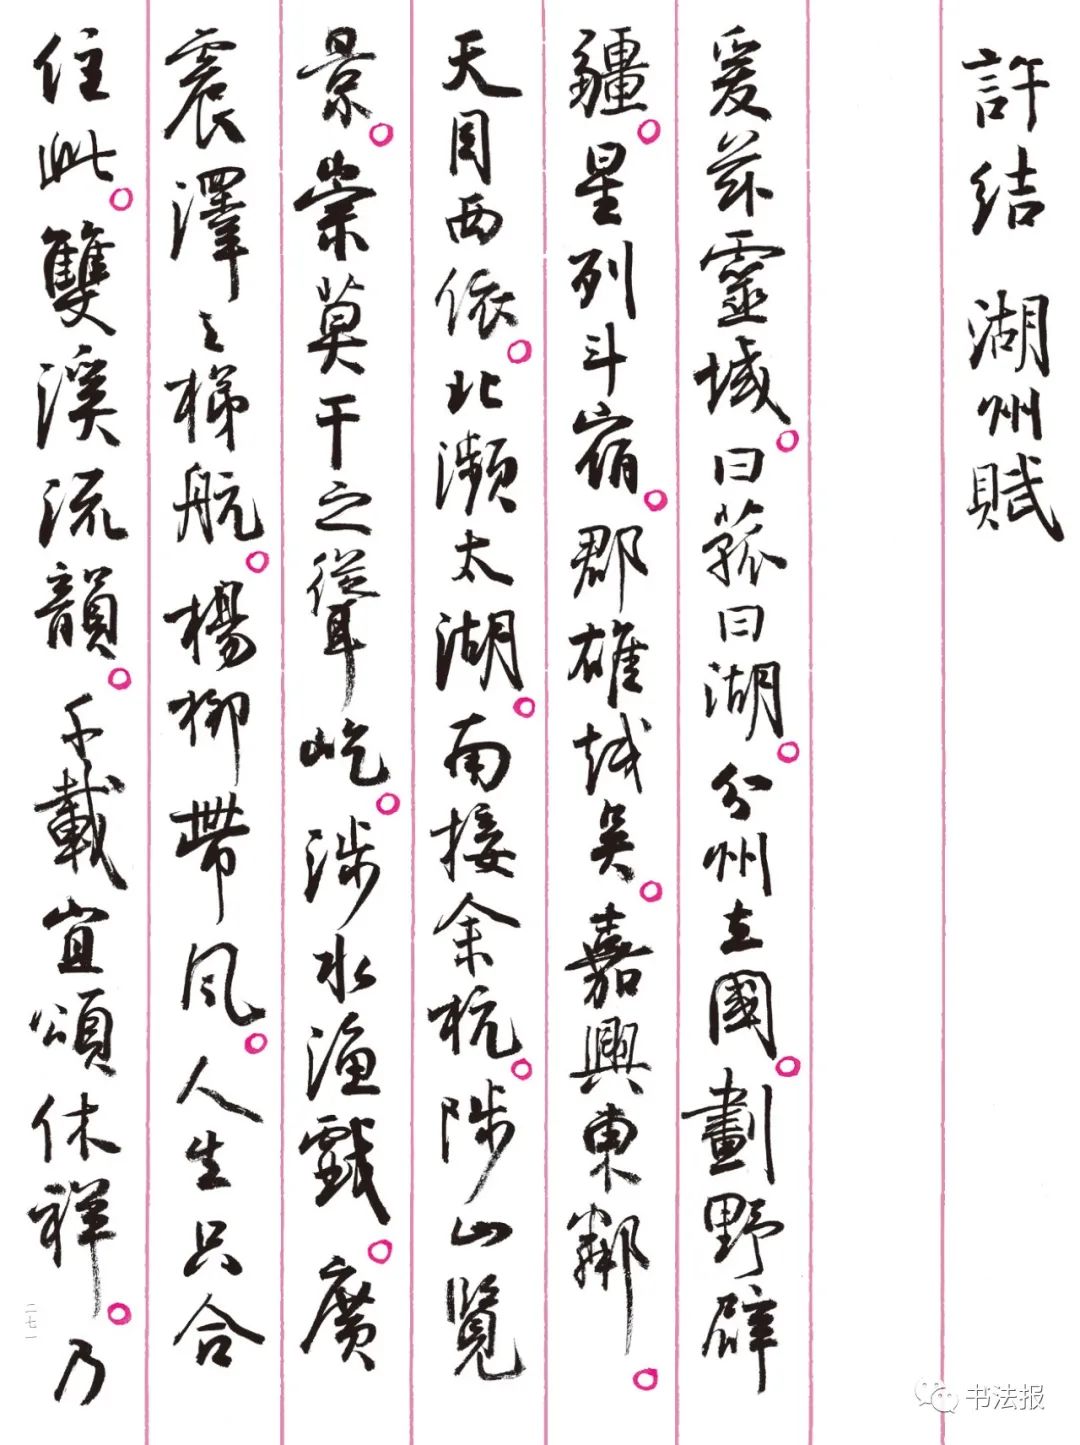 許結 湖州賦
爰茲靈域。曰菰曰湖。分州立國。劃野辟
疆。星列斗宿。郡雄越吳。嘉興東鄰。
天目西依。北瀕太湖。南接余杭。陟山覽
景。崇莫干之聳屹。涉水漁戲。廣
震澤之梯航。楊柳帶風。人生只合
住此。雙溪流韻。千載宜頌休祥。乃
二七一
书法报